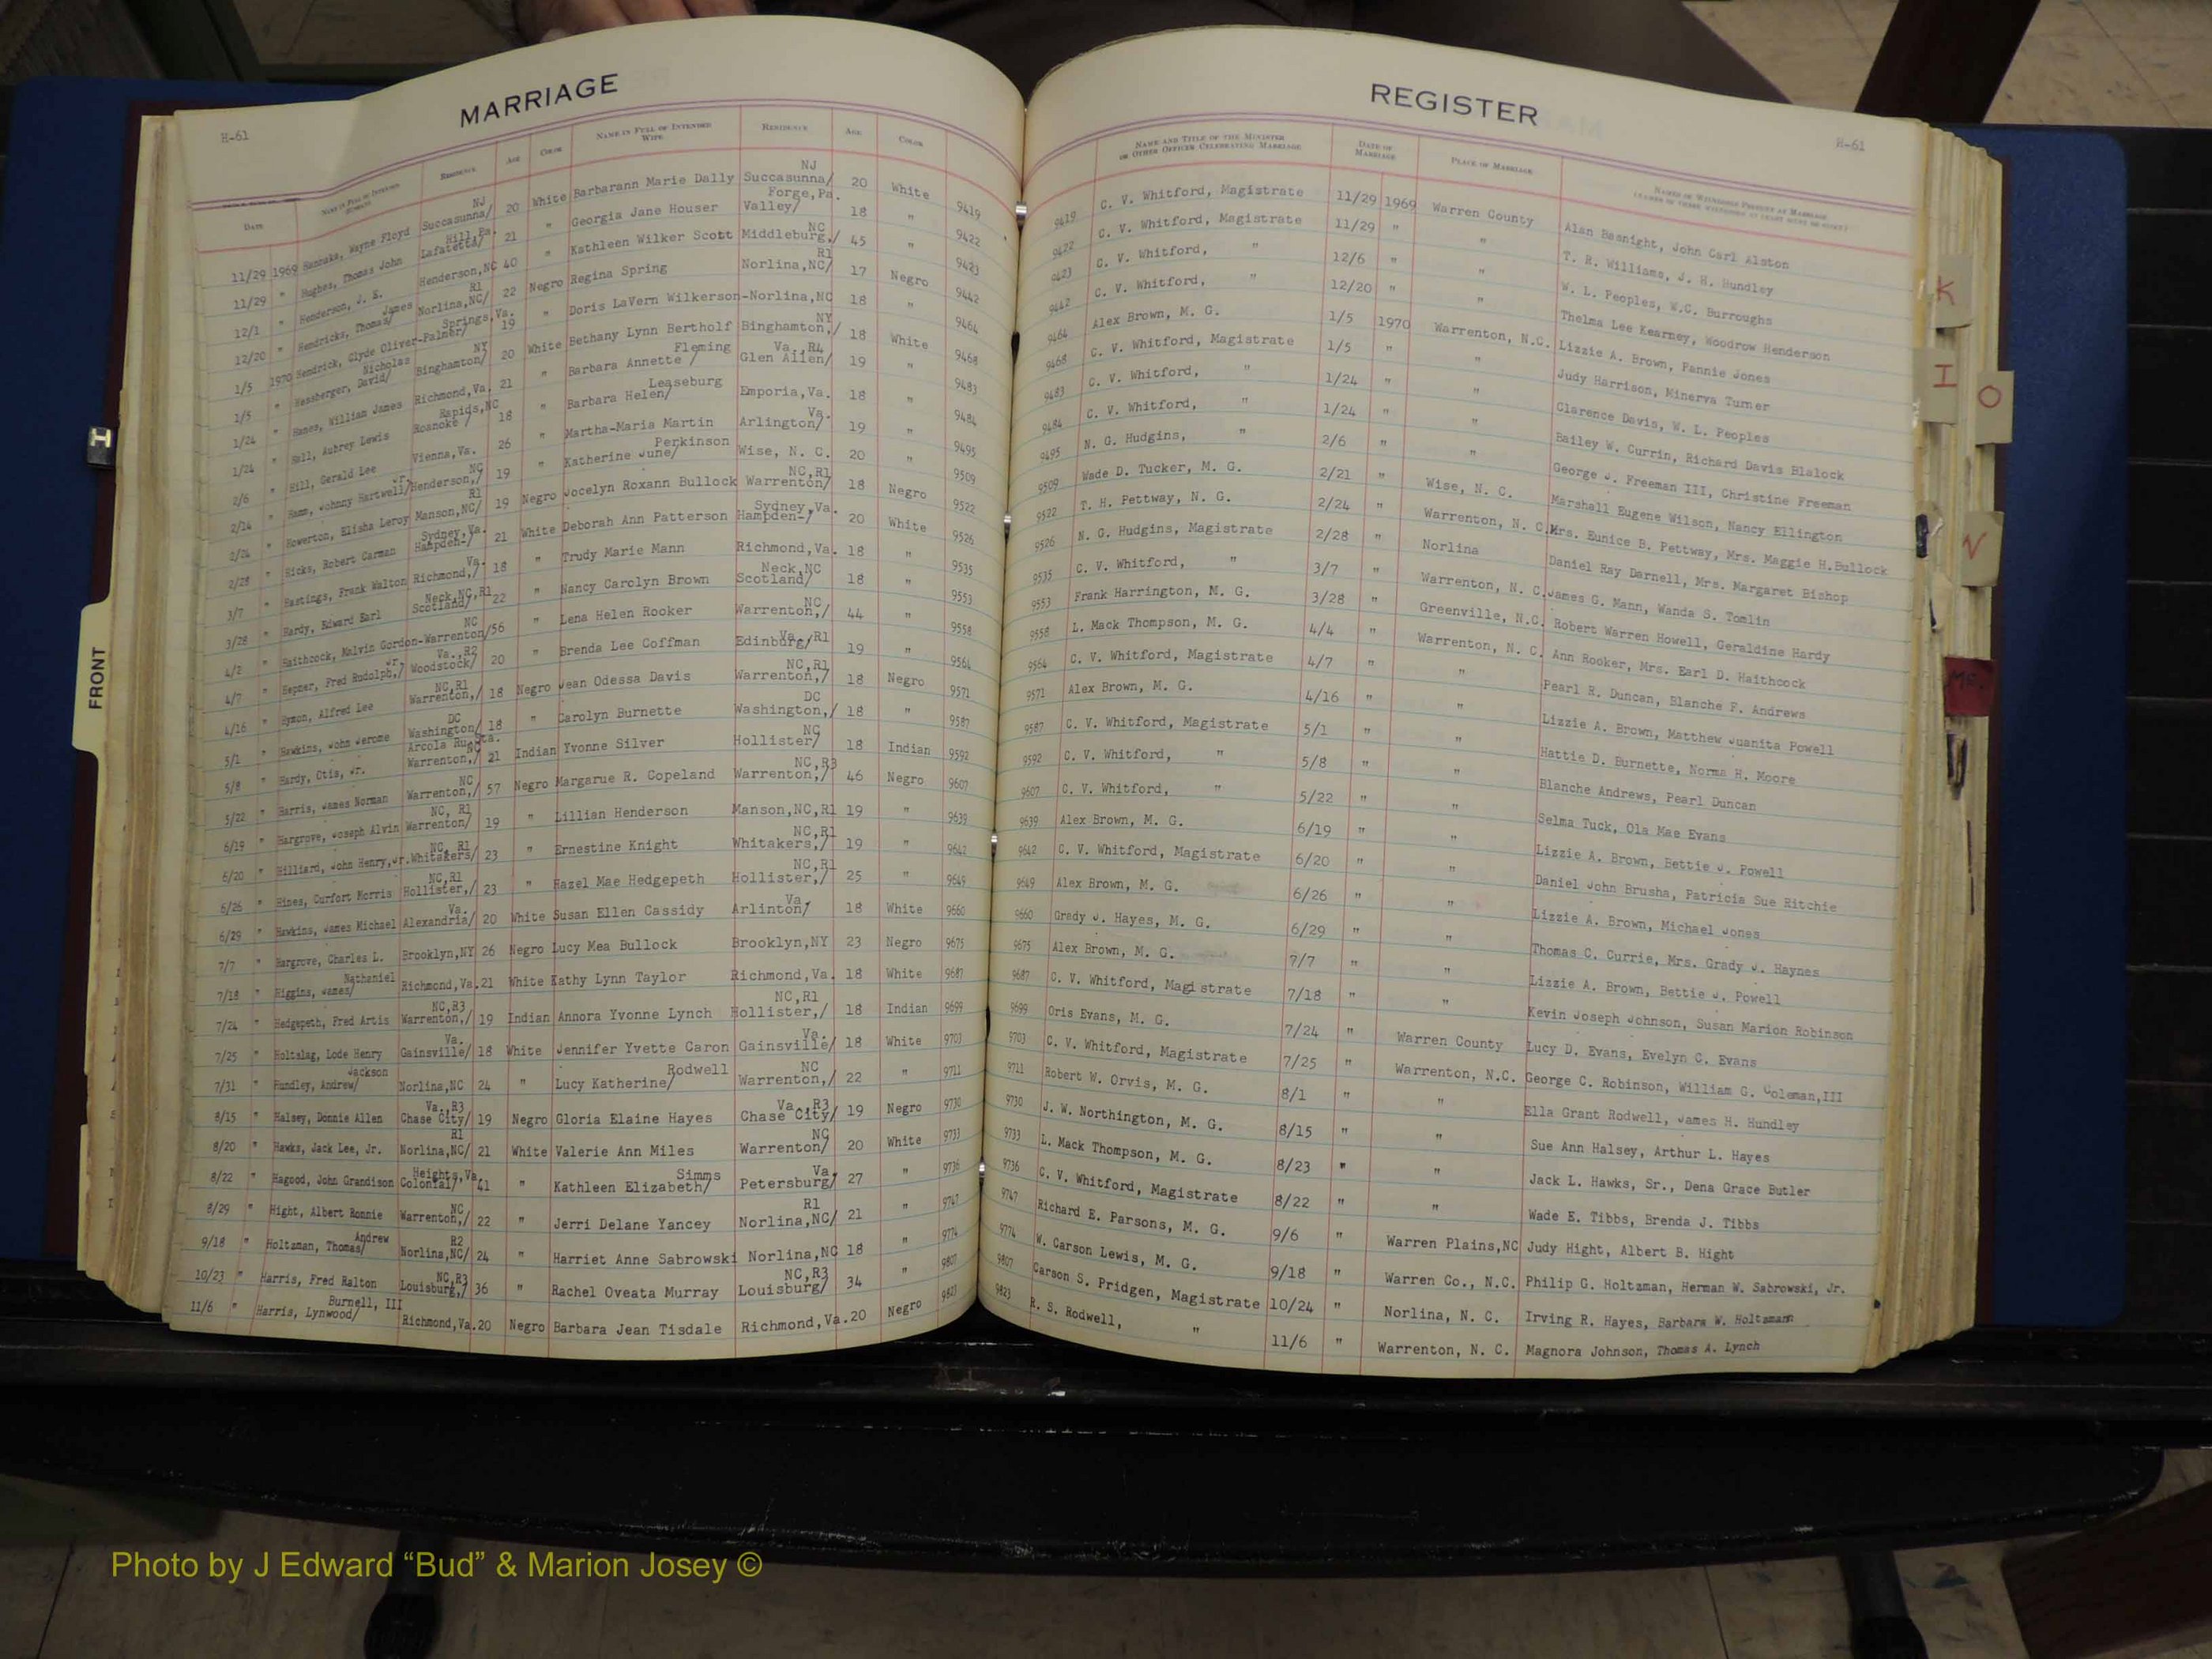 MARRIAGE
H-61
DATE NAME IN FULL OF INTENDED HUSBAND RESIDENCE AGE COLOR NAME IN FULL OF INTENDED WIFE RESIDENCE AGE COLOR
11/29 1969 Hannaka, Wayne Floyd Succasunna/ NJ 20 White Barbarann Marie Dally Succasunna/ NJ 20 White 9419
11/29 " Hughes, Thomas John Lafatetta/ Hill,Pa. 21 " Georgia Jane Houser Valley/ Forge,Pa. 18 " 9422
12/1 " Henderson, J. E. Henderson,NC 40 " Kathleen Wilker Scott Middleburg,/ NC 45 " 9423
12/20 " Hendricks, Thomas/ James Norlina,NC/ R1 22 Negro Regina Spring Norlina,NC/ R1 17 Negro 9442
1/5 1970 Hendrick, Clyde Oliver-Palmer/ Springs,Va. 19 " Doris LaVern Wilkerson-Norlina,NC 18 " 9464
1/5 " Hessberger, David/ Nicholas Binghamton/ NY 20 White Bethany Lynn Bertholf Binghamton,/ NY 18 White 9468
1/24 " Hanes, William James Richmond,Va. 21 " Barbara Annette / Fleming Glen Allen/ Va.,R4 19 " 9483
1/24 " Hall, Aubrey Lewis Roanoke / Rapids,NC 18 " Barbara Helen/ Leaseburg Emporia,Va. 18 " 9484
2/6 " Hill, Gerald Lee Vienna,Va. 26 " Martha-Maria Martin Arlington/ Va. 19 " 9495
2/14 " Hamm, Johnny Hartwell/ Jr. Henderson,/ NC 19 " Katherine June/ Perkinson Wise, N. C. 20 " 9509
2/24 " Howerton, Elisha Leroy Manson,NC/ R1 19 Negro Jocelyn Roxann Bullock Warrenton/ NC,R1 18 Negro 9522
2/28 " Hicks, Robert Carman Hampden-/ Sydney,Va. 21 White Deborah Ann Patterson Hampden-/ Sydney,Va. 20 White 9526
3/7 " Hastings, Frank Walton Richmond,/ Va. 18 " Trudy Marie Mann Richmond,Va. 18 " 9535
3/28 " Hardy, Edward Earl Scotland/ Neck,NC,R1 22 " Nancy Carolyn Brown Scotland/ Neck,NC 18 " 9553
4/2 " Haithcock, Malvin Gordon-Warrenton/ NC 56 " Lena Helen Rooker Warrenton,/ NC 44 " 9558
4/7 " Hepner, Fred Rudolph,/ Jr. Woodstock/ Va.,R2 20 " Brenda Lee Coffman Edinburg/ Va.,R1 19 " 9564
4/16 " Hymon, Alfred Lee Warrenton,/ NC,R1 18 Negro Jean Odessa Davis Warrenton,/ NC,R1 18 Negro 9571
5/1 " Hawkins, John Jerome Washington/ DC 18 " Carolyn Burnette Washington,/ DC 18 " 9587
5/8 " Hardy, Otis, Jr. Warrenton,/ Arcola Ru.Sta. NC 21 Indian Yvonne Silver Hollister/ NC 18 Indian 9592
5/22 " Harris, James Norman Warrenton,/ NC 57 Negro Margarue R. Copeland Warrenton,/ NC,R3 46 Negro 9607
6/19 " Hargrove, Joseph Alvin Warrenton/ NC, R1 19 " Lillian Henderson Manson,NC,R1 19 " 9639
6/20 " Hilliard, John Henry,Jr. Whitakers/ NC, R1 23 " Ernestine Knight Whitakers,/ NC,R1 19 " 9642
6/26 " Hines, Curfort Morris Hollister,/ NC,R1 23 " Hazel Mae Hedgepeth Hollister,/ NC,R1 25 " 9649
6/29 " Hawkins, James Michael Alexandria/ Va. 20 White Susan Ellen Cassidy Arlinton/ Va. 18 White 9660
7/7 " Hargrove, Charles L. Brooklyn,NY 26 Negro Lucy Mea Bullock Brooklyn,NY 23 Negro 9675
7/18 " Higgins, James/ Nathaniel Richmond,Va. 21 White Kathy Lynn Taylor Richmond,Va. 18 White 9687
7/24 " Hedgepeth, Fred Artis Warrenton,/ NC,R3 19 Indian Annora Yvonne Lynch Hollister,/ NC,R1 18 Indian 9699
7/25 " Holtslag, Lode Henry Gainsville/ Va. 18 White Jennifer Yvette Caron Gainsville/ Va. 18 White 9703
7/31 " Hundley, Andrew/ Jackson Norlina,NC 24 " Lucy Katherine/ Rodwell Warrenton,/ NC 22 " 9711
8/15 " Halsey, Donnie Allen Chase City/ Va.,R3 19 Negro Gloria Elaine Hayes Chase City/ Va.,R3 19 Negro 9730
8/20 " Hawks, Jack Lee, Jr. Norlina,NC/ R1 21 White Valerie Ann Miles Warrenton/ NC 20 White 9733
8/22 " Hagood, John Grandison Colonial/ Heights,Va. 41 " Kathleen Elizabeth/ Simms Petersburg/ Va. 27 " 9736
8/29 " Hight, Albert Ronnie Warrenton,/ NC 22 " Jerri Delane Yancey Norlina,NC/ R1 21 " 9747
9/18 " Holtzman, Thomas/ Andrew Norlina,NC/ R2 24 " Harriet Anne Sabrowski Norlina,NC 18 " 9774
10/23 " Harris, Fred Ralton Louisburg,/ NC,R3 36 " Rachel Oveata Murray Louisburg/ NC,R3 34 " 9807
11/6 " Harris, Lynwood/ Burnell, III Richmond,Va. 20 Negro Barbara Jean Tisdale Richmond,Va. 20 Negro 9823
REGISTER
H-61
NAME AND TITLE OF THE MINISTER OR OTHER OFFICER CELEBRATING MARRIAGE DATE OF MARRIAGE PLACE OF MARRIAGE
9419 C. V. Whitford, Magistrate 11/29 1969 Warren County Alan Basnight, John Carl Alston
9422 C. V. Whitford, Magistrate 11/29 " " T. R. Williams, J. H. Hundley
9423 C. V. Whitford, " 12/6 " " W. L. Peoples, W.C. Burroughs
9442 C. V. Whitford, " 12/20 " " Thelma Lee Kearney, Woodrow Henderson
9464 Alex Brown, M. G. 1/5 1970 Warrenton, N.C. Lizzie A. Brown, Pannie Jones
9468 C. V. Whitford, Magistrate 1/5 " " Judy Harrison, Minerva Turner
9483 C. V. Whitford, " 1/24 " " Clarence Davis, W. L. Peoples
9484 C. V. Whitford, " 1/24 " " Bailey W. Currin, Richard Davis Blalock
9495 N. G. Hudgins, " 2/6 " " George J. Freeman III, Christine Freeman
9509 Wade D. Tucker, M. G. 2/21 " Wise, N. C. Marshall Eugene Wilson, Nancy Ellington
9522 T. H. Pettway, N. G. 2/24 " Warrenton, N. C. Mrs. Eunice B. Pettway, Mrs. Maggie H.Bullock
9526 N. G. Hudgins, Magistrate 2/28 " Norlina Daniel Ray Darnell, Mrs. Margaret Bishop
9535 C. V. Whitford, " 3/7 " Warrenton, N. C. James G. Mann, Wanda S. Tomlin
9553 Frank Harrington, M. G. 3/28 " Greenville, N.C. Robert Warren Howell, Geraldine Hardy
9558 L. Mack Thompson, M. G. 4/4 " Warrenton, N. C. Ann Rooker, Mrs. Earl D. Haithcock
9564 C. V. Whitford, Magistrate 4/7 " " Pearl R. Duncan, Blanche F. Andrews
9571 Alex Brown, M. G. 4/16 " " Lizzie A. Brown, Matthew Juanita Powell
9587 C. V. Whitford, Magistrate 5/1 " " Hattie D. Burnette, Norma H. Moore
9592 C. V. Whitford, " 5/8 " " Blanche Andrews, Pearl Duncan
9607 C. V. Whitford, " 5/22 " " Selma Tuck, Ola Mae Evans
9639 Alex Brown, M. G. 6/19 " " Lizzie A. Brown, Bettie J. Powell
9642 C. V. Whitford, Magistrate 6/20 " " Daniel John Brusha, Patricia Sue Ritchie
9649 Alex Brown, M. G. 6/26 " " Lizzie A. Brown, Michael Jones
9660 Grady J. Hayes, M. G. 6/29 " " Thomas C. Currie, Mrs. Grady J. Haynes
9675 Alex Brown, M. G. 7/7 " " Lizzie A. Brown, Bettie J. Powell
9687 C. V. Whitford, Magistrate 7/18 " " Kevin Joseph Johnson, Susan Marion Robinson
9699 Oris Evans, M. G. 7/24 " Warren County Lucy D. Evans, Evelyn C. Evans
9703 C. V. Whitford, Magistrate 7/25 " Warrenton, N.C. George C. Robinson, William G. Coleman,III
9711 Robert W. Orvis, M. G. 8/1 " " Ella Grant Rodwell, James H. Hundley
9730 J. W. Northington, M. G. 8/15 " " Sue Ann Halsey, Arthur L. Hayes
9733 L. Mack Thompson, M. G. 8/23 " " Jack L. Hawks, Sr., Dena Grace Butler
9736 C. V. Whitford, Magistrate 8/22 " " Wade E. Tibbs, Brenda J. Tibbs
9747 Richard E. Parsons, M. G. 9/6 " Warren Plains,NC Judy Hight, Albert B. Hight
9774 W. Carson Lewis, M. G. 9/18 " Warren Co., N.C. Philip G. Holtzman, Herman W. Sabrowski, Jr.
9807 Carson S. Pridgen, Magistrate 10/24 " Norlina, N. C. Irving R. Hayes, Barbara W. Holtzmann
9823 R. S. Rodwell, " 11/6 " Warrenton, N. C. Magnora Johnson, Thomas A. Lynch
FRONT
H
K
I
O
N
Mc.
Photo by J Edward “Bud” & Marion Josey ©